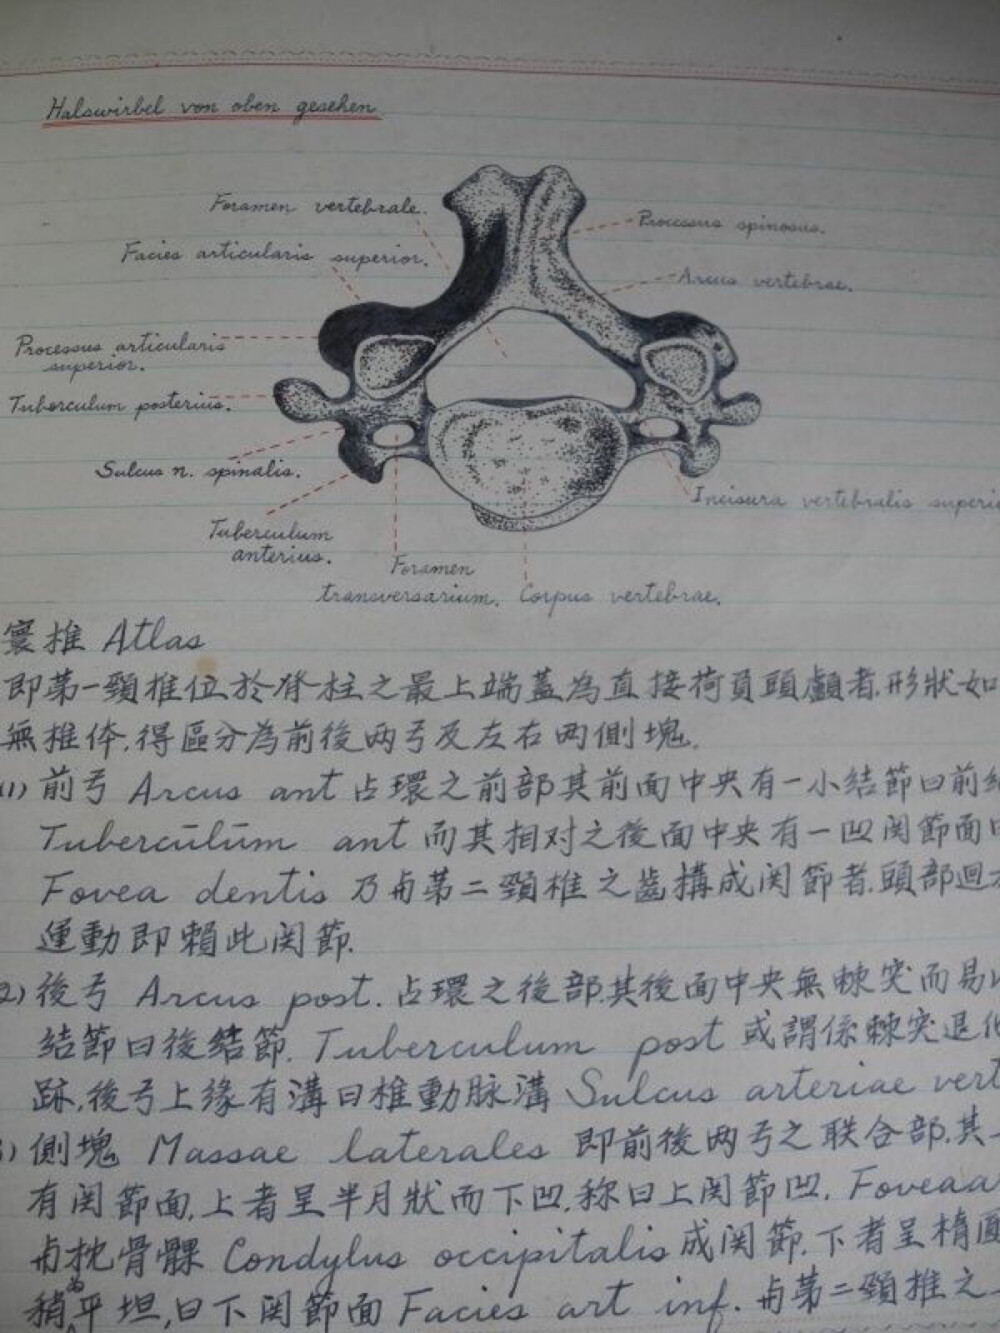 Halswirbel von oben gesehen
Foramen vertebrale.
Processus spinosus.
Facies articularis superior.
Arcus vertebrae.
Processus articularis
superior.
Tuberculum posterius.
Sulcus n. spinalis.
Incisura vertebralis superi
Tuberculum
anterius.
Foramen
transversarium.
Corpus vertebrae.
寰推 Atlas
即第一頸推位於脊柱之最上端蓋為直接荷員頭顱者.形狀如
無推体.得區分為前後两弓及左右两側塊.
(1) 前弓 Arcus ant 占環之前部其前面中央有一小结節曰前
Tubercūlūm ant 而其相对之後面中央有一凹関節面
Fovea dentis 乃与第二頸椎之齒構成関節者.頭部迴
運動即賴此関節.
2) 後弓 Arcus post. 占環之後部.其後面中央無棘突而易
结節曰後结節. Tuberculum post 或謂係棘突退化
跡.後弓上緣有溝曰椎動脉溝 Sulcus arteriae vert
3) 側塊 Massae laterales 即前後两弓之联合部.其
有関節面.上者呈半月狀而下凹.称曰上関節凹. Foveaa
与枕骨髁 Condylus occipitalis 成関節.下者呈楕圓
稍為平坦.曰下関節面 Facies art inf. 与第二頸推之